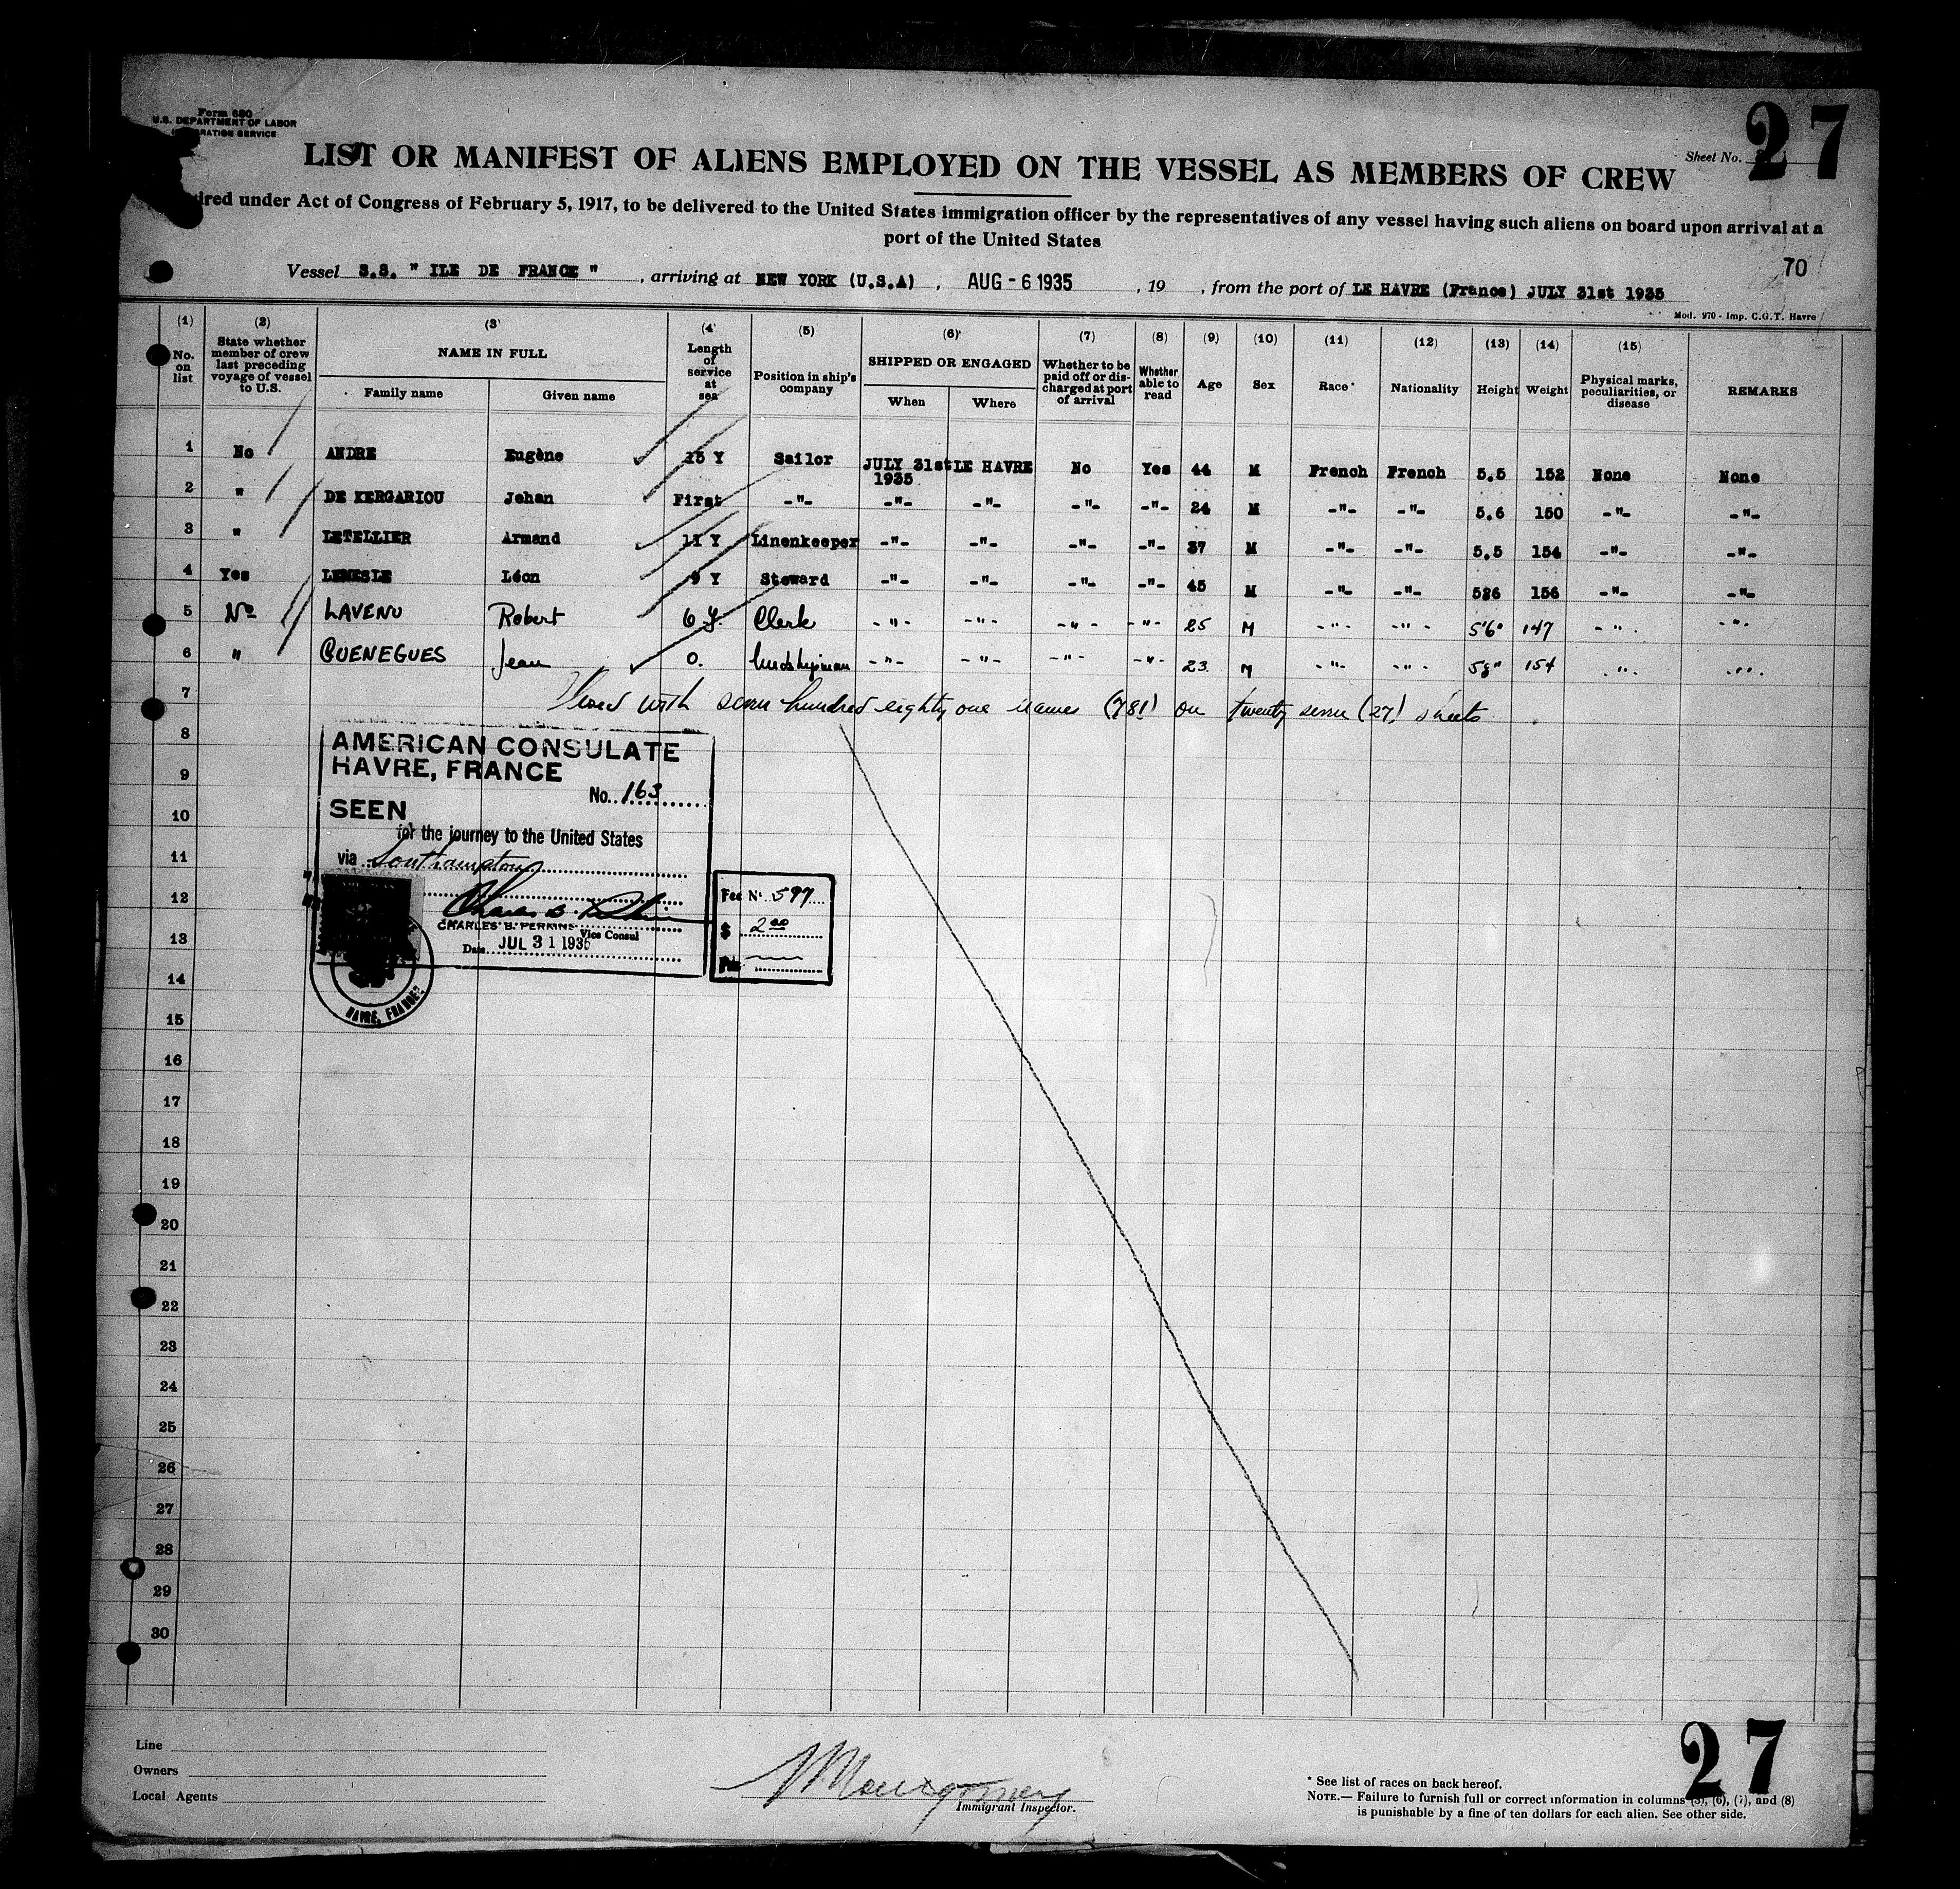 Form 680
U.S. DEPARTMENT OF LABOR
RATION SERVICE
27
Sheet No.
LIST OR MANIFEST OF ALIENS EMPLOYED ON THE VESSEL AS MEMBERS OF CREW
ired under Act of Congress of February 5, 1917, to be delivered to the United States immigration officer by the representatives of any vessel having such aliens on board upon arrival at a
port of the United States
70
Vessel S.S. " ILE DE FRANCE " , arriving at NEW YORK (U.S.A) , AUG - 6 1935 , 19 , from the port of LE HAVRE (France) JULY 31st 1935
Mod. 970 - Imp. C.G.T. Havre
(1) (2) (3) (4) (5) (6) (7) (8) (9) (10) (11) (12) (13) (14) (15)
No. on list
State whether member of crew last preceding voyage of vessel to U.S.
NAME IN FULL
Family name Given name
Length of service at sea
Position in ship's company
SHIPPED OR ENGAGED
When Where
Whether to be paid off or discharged at port of arrival
Whether able to read
Age Sex Race * Nationality Height Weight
Physical marks, peculiarities, or disease
REMARKS
1 No ANDRE Eugène 15 Y Sailor JULY 31st 1935 LE HAVRE No Yes 44 M French French 5.5 152 None None
2 " DE KERGARIOU Jehan First -"- -"- -"- -"- -"- 24 M -"- -"- 5.6 150 -"- -"-
3 " LETELLIER Armand 11 Y Linenkeeper -"- -"- -"- -"- 37 M -"- -"- 5.5 154 -"- -"-
4 Yes LEMESLE Léon 9 Y Steward -"- -"- -"- -"- 45 M -"- -"- 586 156 -"- -"-
5 No LAVENU Robert 6 Y. Clerk -"- -"- -"- -"- 25 M -"- -"- 5'6" 147 -"- -"-
6 " QUENEGUES Jean 0. Midshipman -"- -"- -"- -"- 23 M -"- -"- 58" 154 -"- -"-
7 with seven hundred eighty one names (781) on twenty seven (27) sheets
8
9
10
11
12
13
14
15
16
17
18
19
20
21
22
23
24
25
26
27
28
29
30
AMERICAN CONSULATE
HAVRE, FRANCE
No. 163
SEEN
for the journey to the United States
via Southampton
CHARLES B. PERKINS Vice Consul
Date JUL 31 1935
HAVRE, FRANCE
Fee No. 597
$ 2.00
Line
Owners
Local Agents
Montgomery
Immigrant Inspector.
27
* See list of races on back hereof.
NOTE.— Failure to furnish full or correct information in columns (3), (6), (7), and (8)
is punishable by a fine of ten dollars for each alien. See other side.